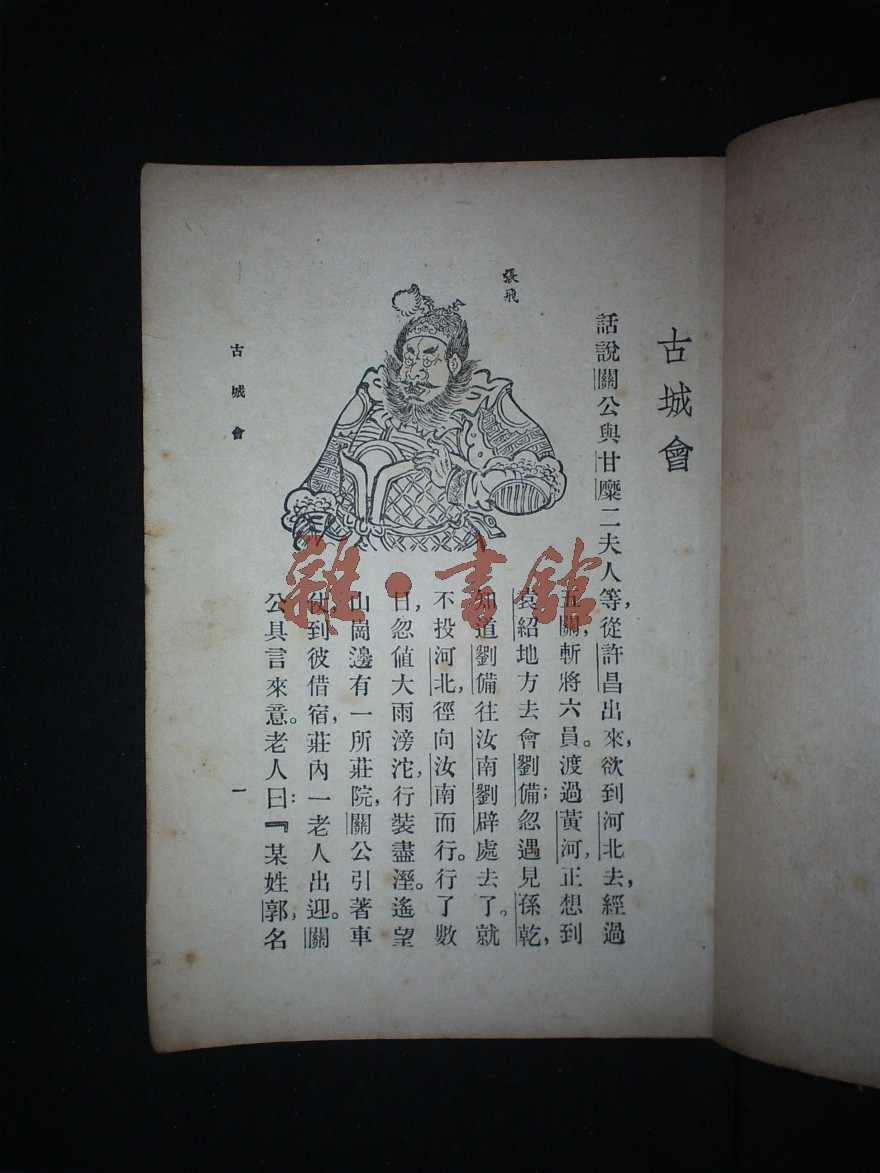 古城會
話說關公與甘糜二夫人等，從許昌出來，欲到河北去，經過
五關，斬將六員。渡過黃河，正想到
袁紹地方去會劉備；忽遇見孫乾，
知道劉備往汝南劉辟處去了。就
不投河北，徑向汝南而行。行了數
日，忽値大雨滂沱，行裝盡溼。遙望
山崗邊有一所莊院，關公引著車
仗，到彼借宿，莊內一老人出迎。關
公具言來意。老人曰：『某姓郭，名
張飛
古城會
一
雜·書館